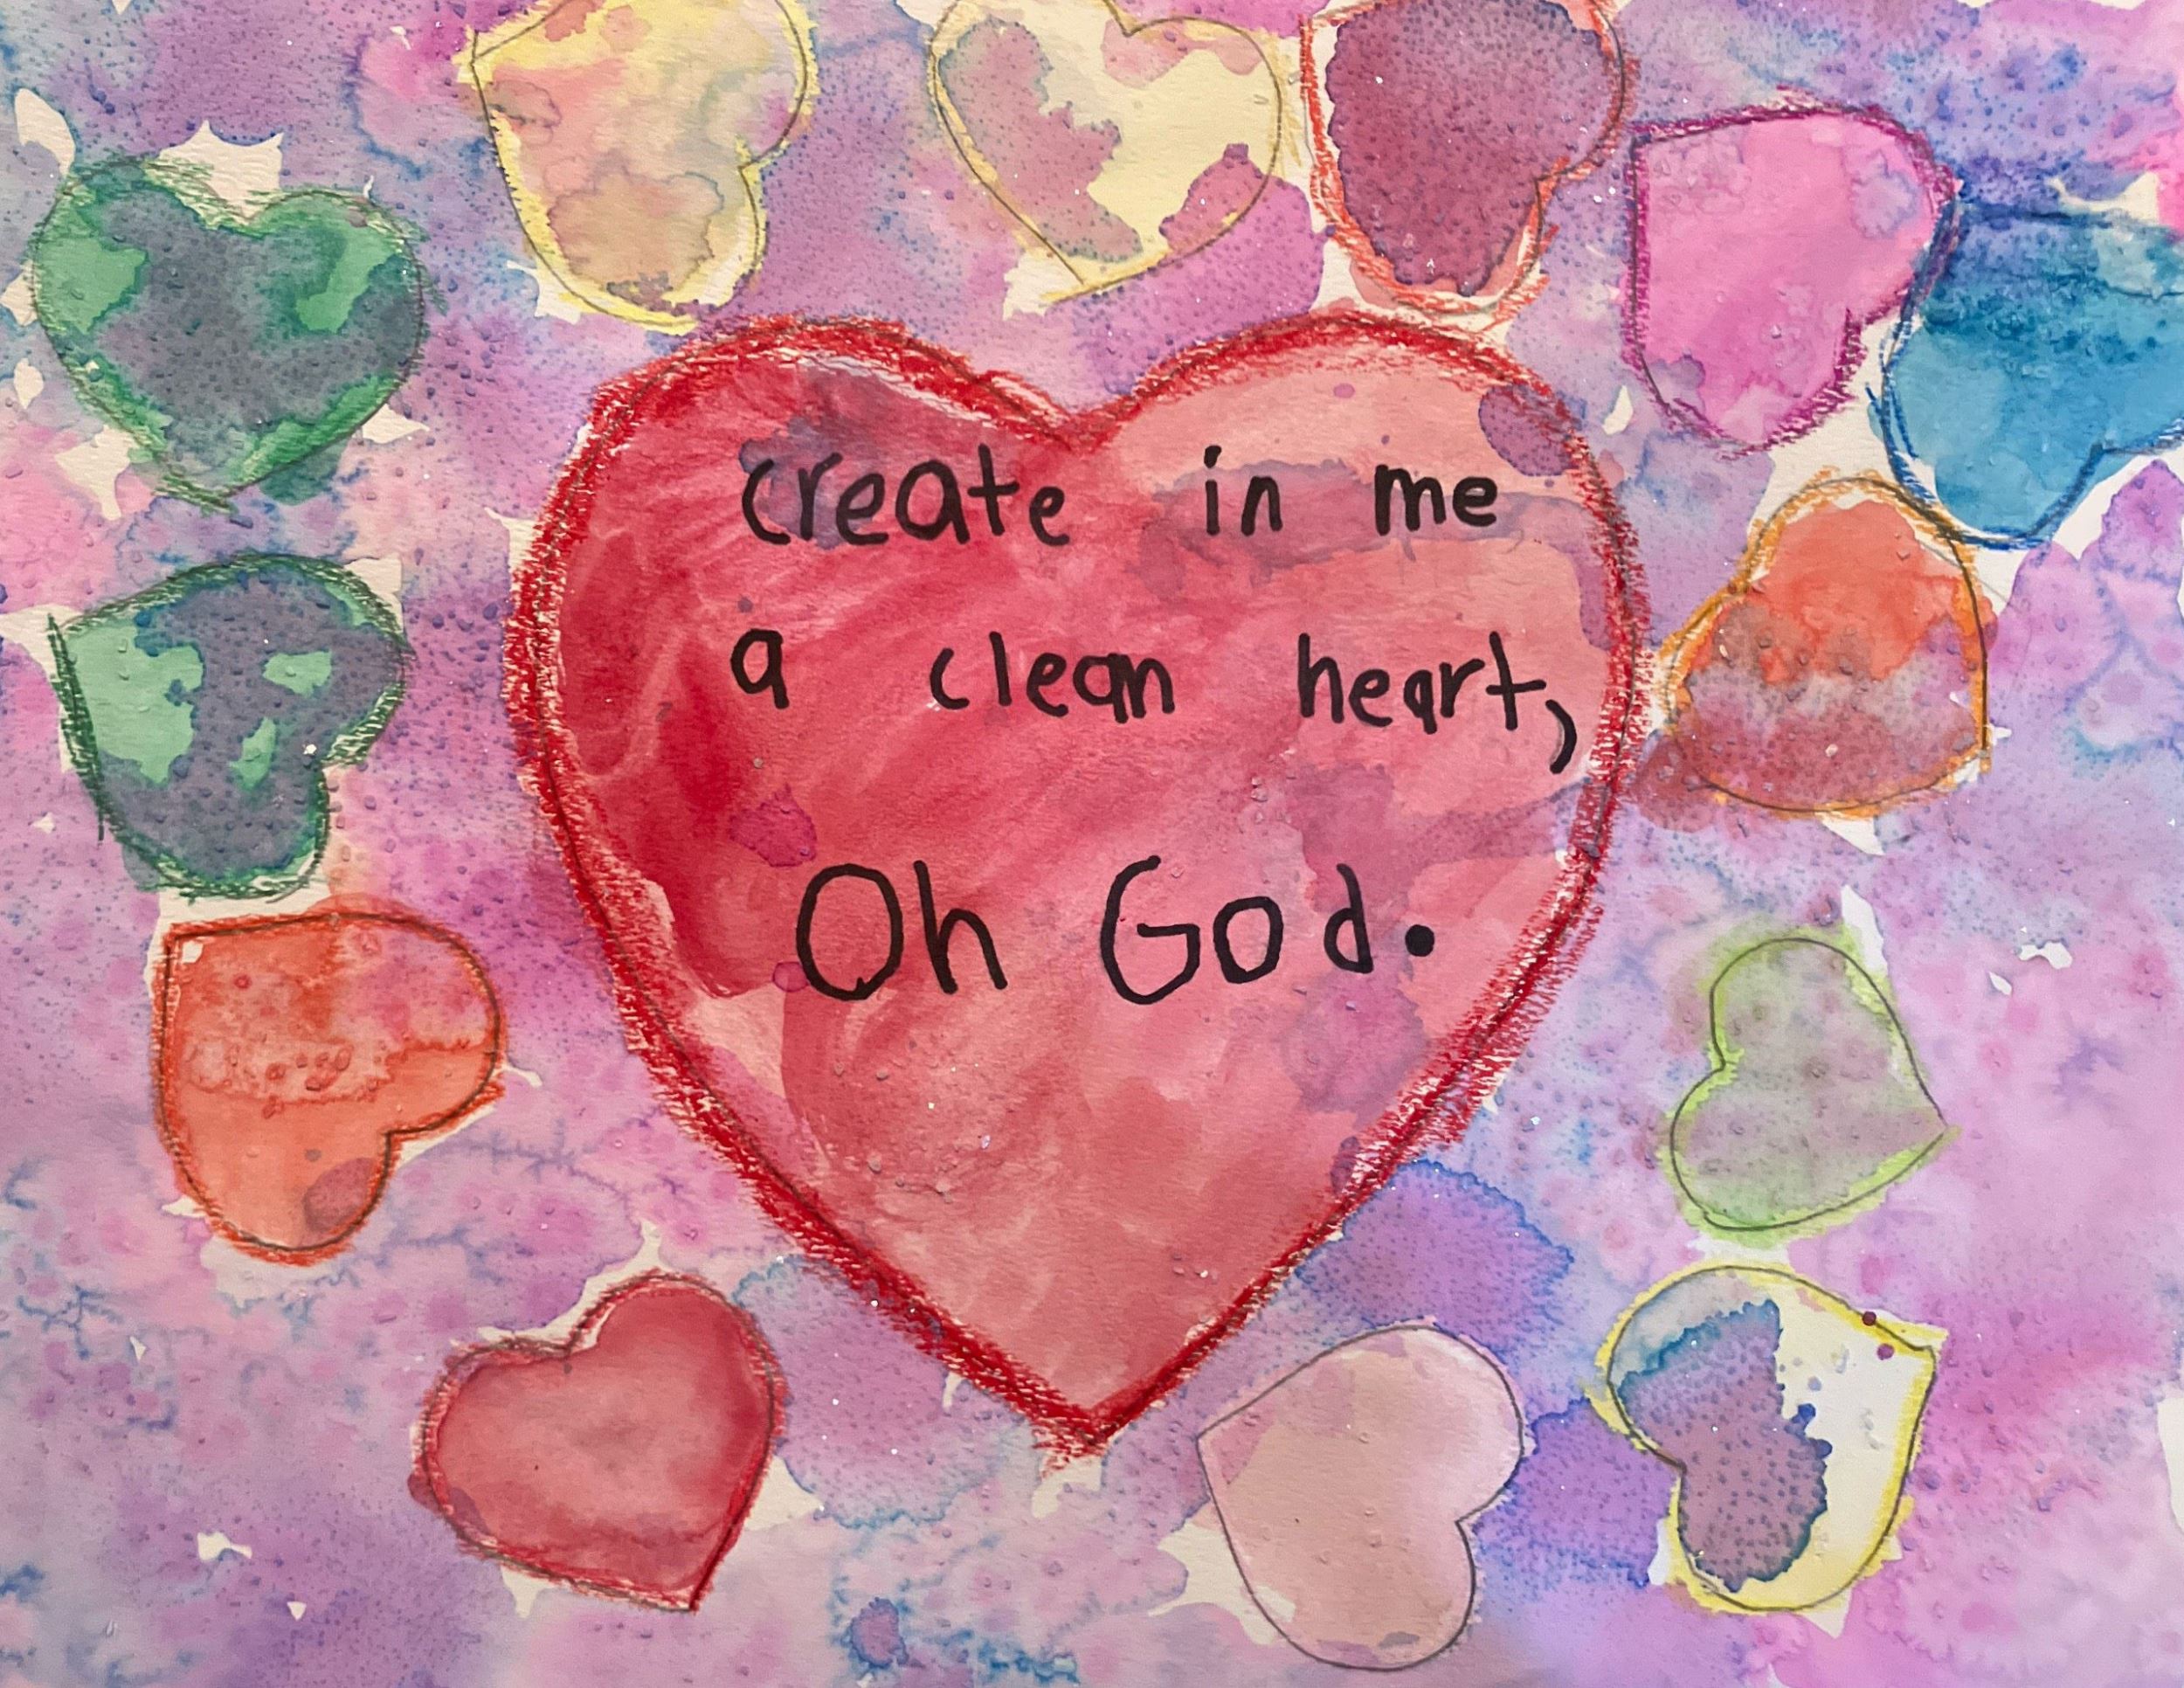 create in me
a clean heart,
Oh God.